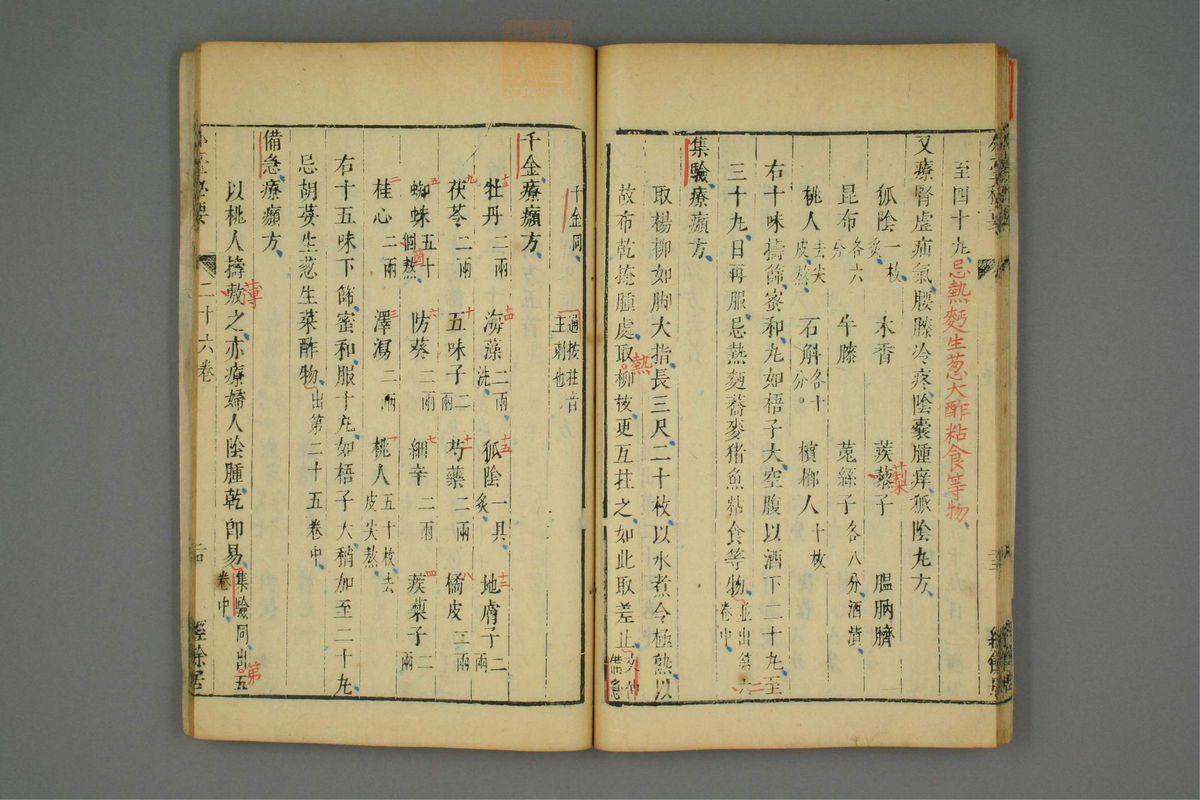 至四十丸忌熱麪生葱大酢粘食等物
又療腎虛疝氣腰膝冷疼陰囊腫痒狐陰丸方
狐陰一枚炙 木香 蒺藜子 膃肭臍
昆布各六分 牛膝 菟絲子各八分酒漬
桃人去尖皮熬 石斛各十分 檳榔人十枚
右十味擣篩蜜和丸如梧子大空腹以酒下二十丸至
三十丸日再服忌熱麪蕎麥猪魚粘食等物並出第六卷中
集驗療㿗方
取楊柳如脚大指長三尺二十枚以水煮令極熱以
故布乾掩腫處取熱柳枝更互拄之如此取差止文仲備急
千金同
主刺也
千金療㿗方
牡丹二兩 海藻二兩洗 狐陰一具炙 地膚子二兩
茯苓二兩 五味子二兩 芍藥二兩 橘皮二兩
蜘蛛五十個熬 防葵二兩 細辛二兩 蒺藜子二兩
桂心二兩 澤瀉二兩 桃人五十枚去皮尖熬
右十五味下篩蜜和服十丸如梧子大稍加至二十九
忌胡荽生葱生菜酢物出第二十五卷中
備急療㿗方
以桃人擣敷之亦療婦人陰腫乾即易集驗同出第五卷中
二十六卷
經餘居